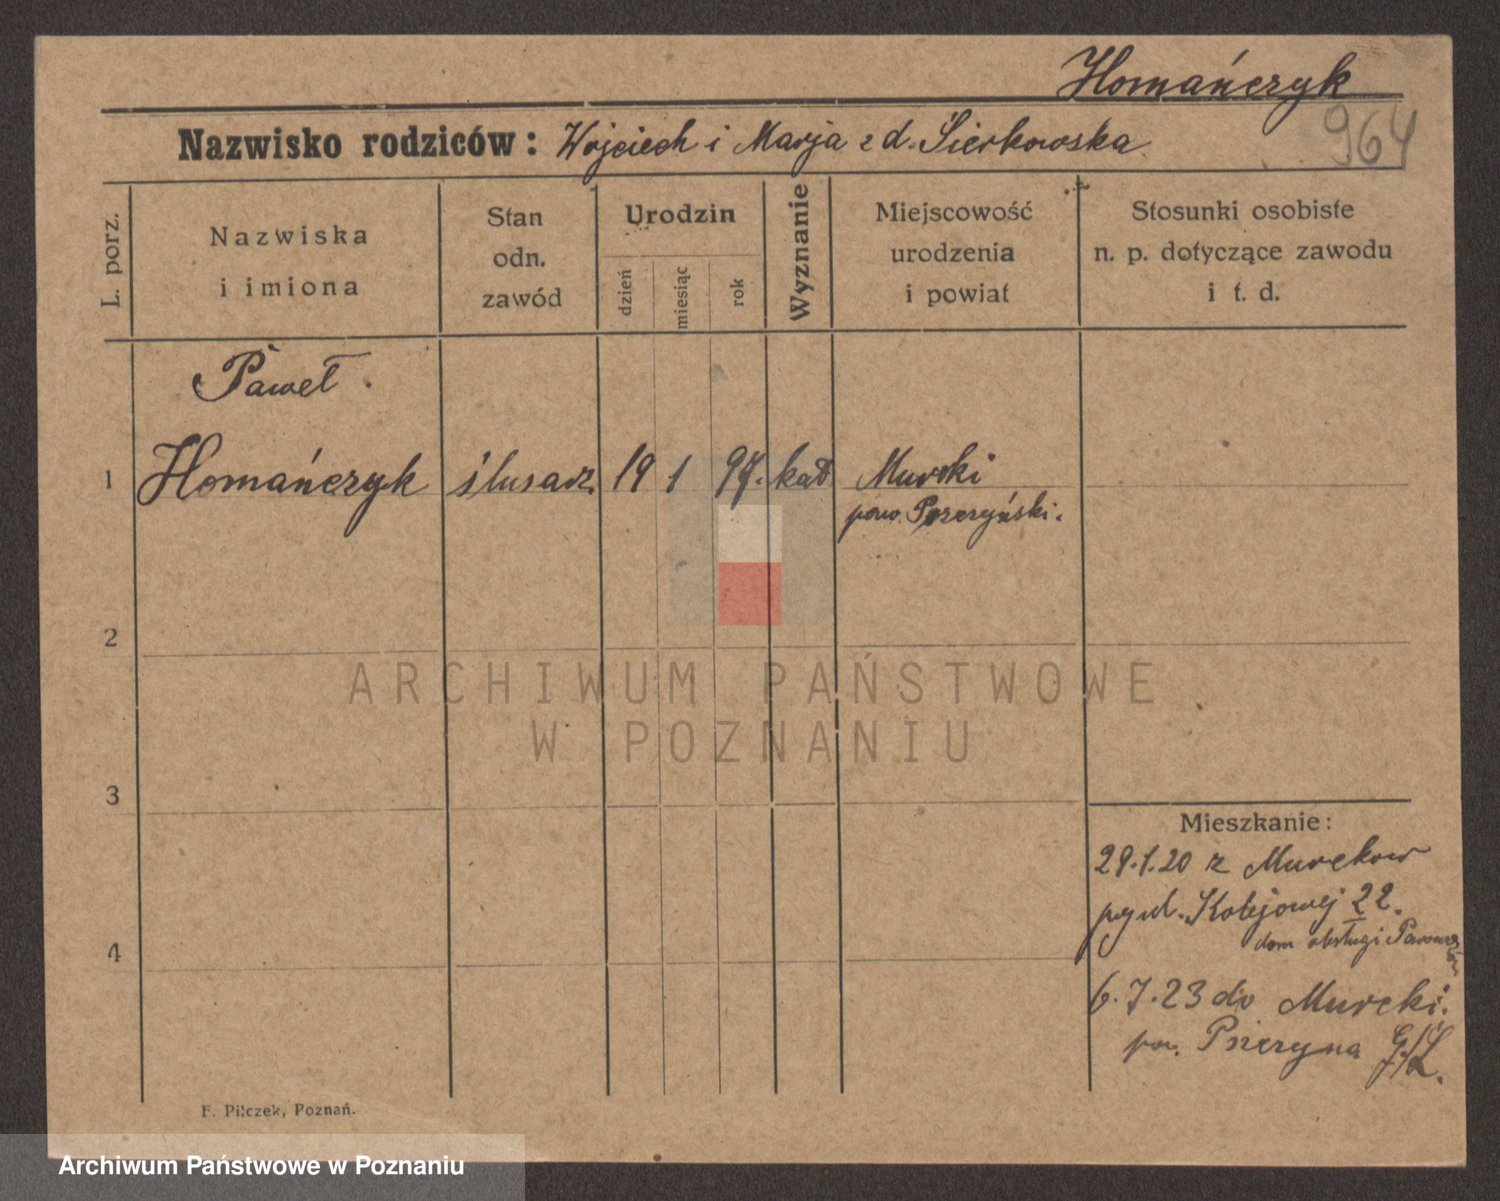 Homańczyk
964
Nazwisko rodziców: Wojciech i Marja z d. Sierkowska
L. porz.
Nazwiska
i imiona
Stan
odn.
zawód
Urodzin
dzień
miesiąc
rok
Wyznanie
Miejscowość
urodzenia
i powiat
Stosunki osobiste
n. p. dotyczące zawodu
i t. d.
Paweł.
1 Homańczyk ślusarz 19 1 97. kat Murcki
pow. Pszczyński.
2
3
4
Mieszkanie:
29.1.20 z Murckow
ul. Kolejowej 22.
dom obsługi
6.7.23 do Murcki.
pow. Pszczyna G/Śl.
F. Pilczek, Poznań.
ARCHIWUM PAŃSTWOWE
W POZNANIU
Archiwum Państwowe w Poznaniu